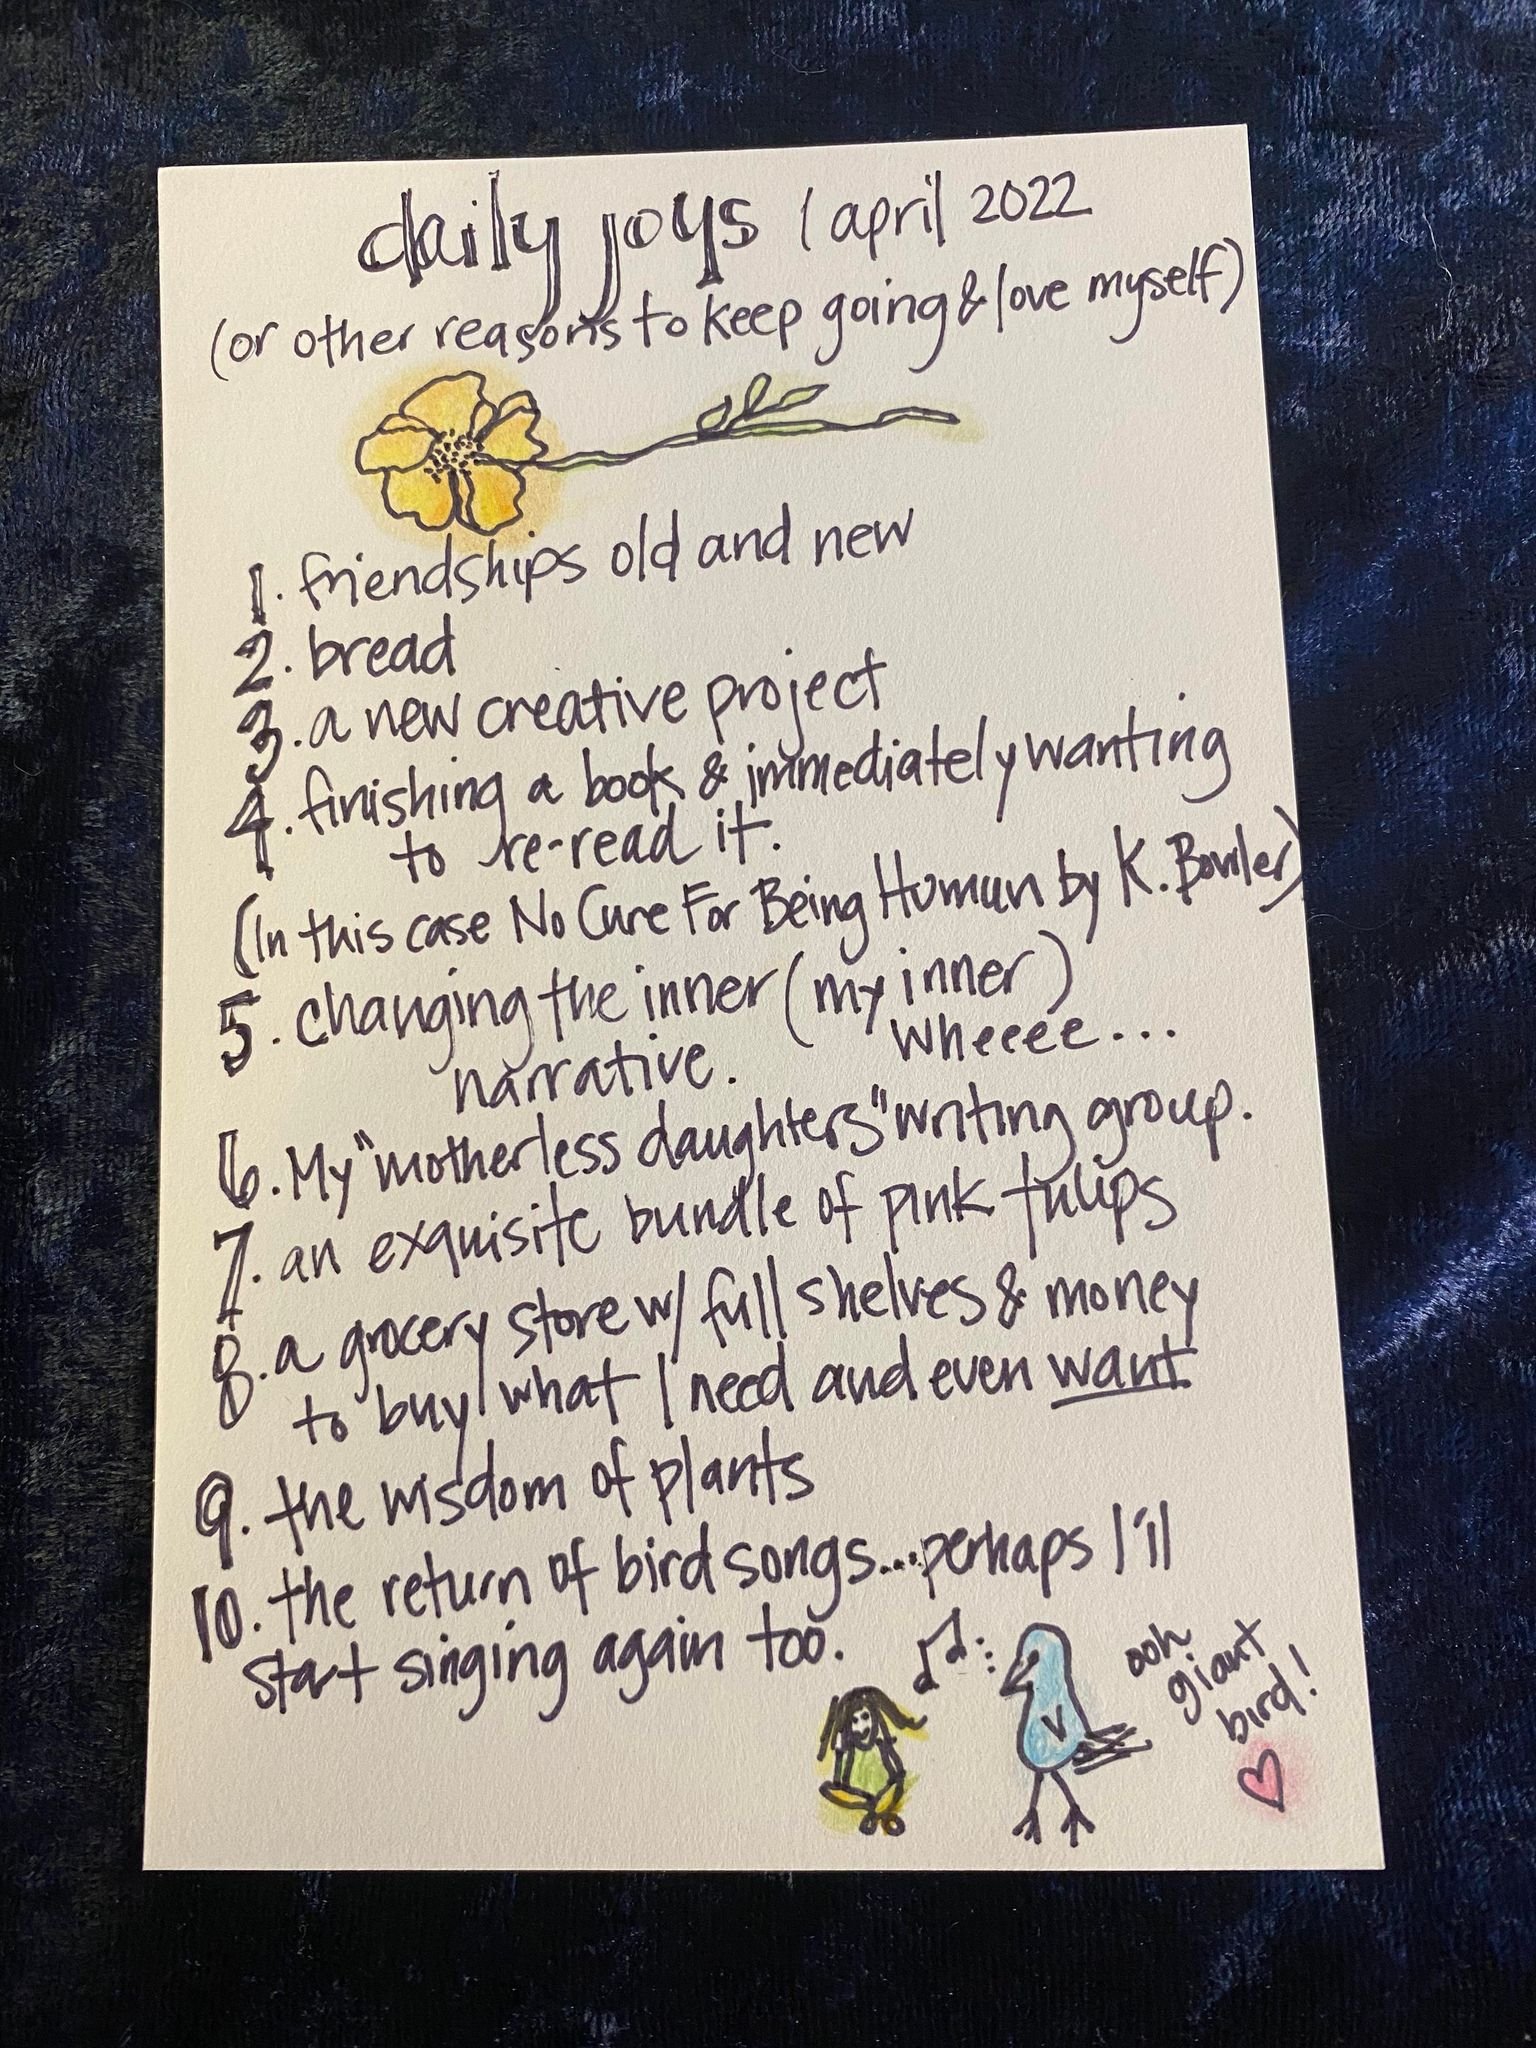 daily joys / april 2022
(or other reasons to keep going & love myself)
1. friendships old and new
2. bread
3. a new creative project
4. finishing a book & immediately wanting
to re-read it.
(In this case No Cure For Being Human by K. Bowler)
5. changing the inner (my inner)
narrative. wheeee...
6. My "motherless daughters" writing group.
7. an exquisite bundle of pink tulips
8. a grocery store w/ full shelves & money
to buy what I need and even want
9. the wisdom of plants
10. the return of bird songs...perhaps I'll
start singing again too.
ooh
giant
bird!